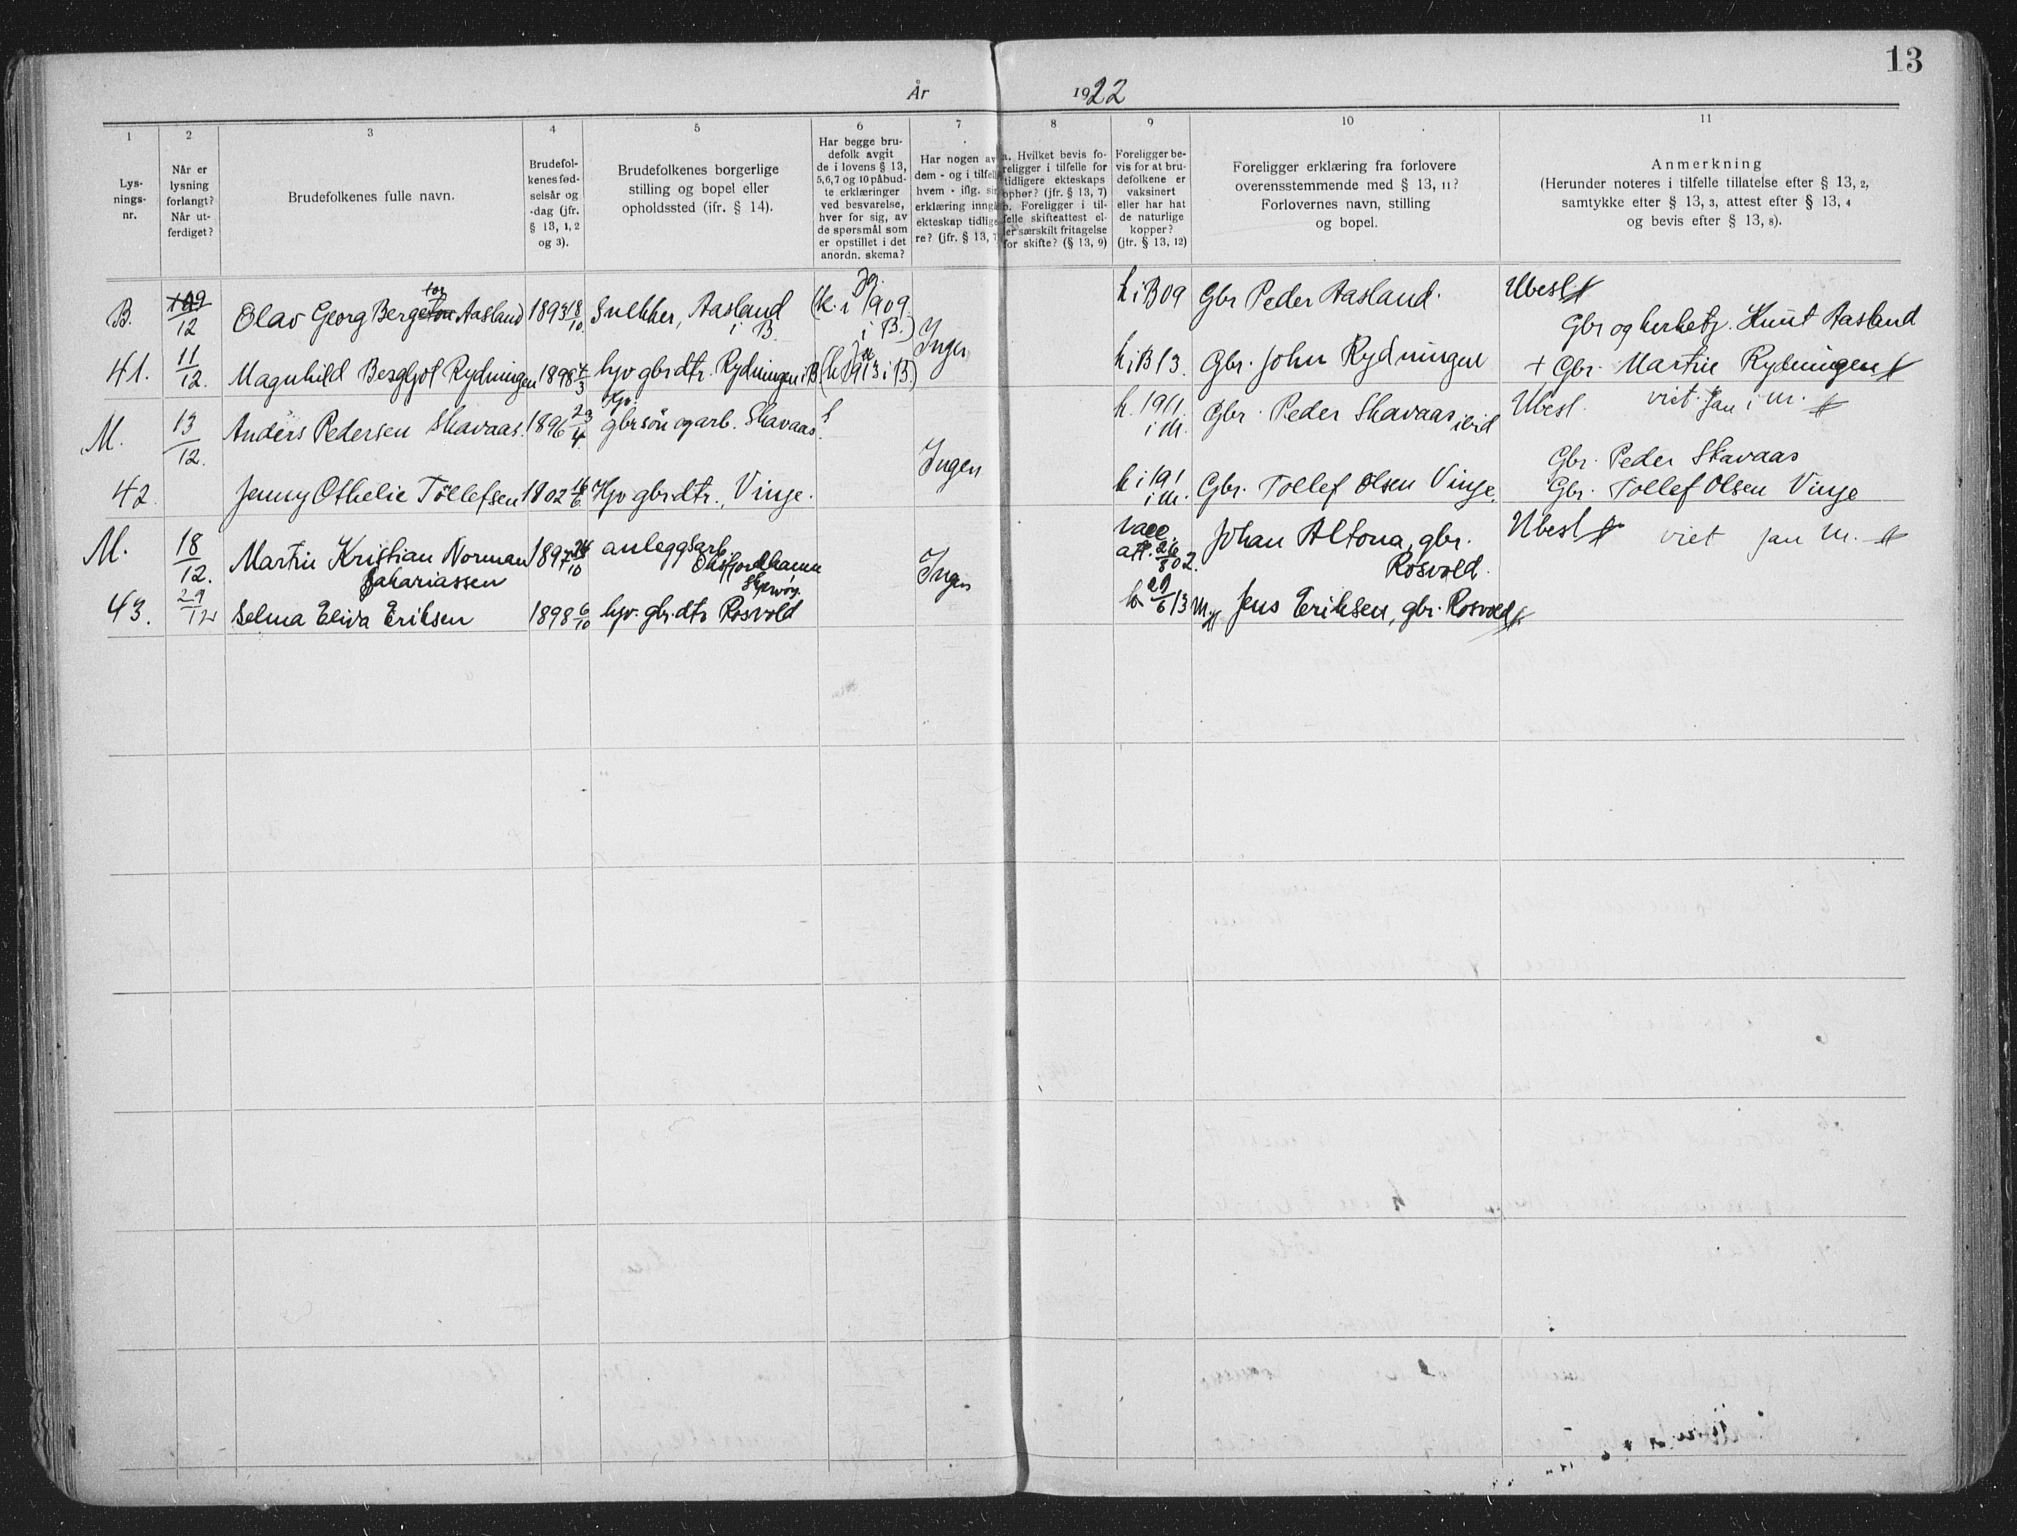 13
År 1922
1
2
3
4
5
6
7
8
9
10
11
Lys-
nings-
nr.
Når er
lysning
forlangt?
Når ut-
ferdiget?
Brudefolkenes fulle navn.
Brudefol-
kenes fød-
selsår og
-dag (jfr.
§ 13, 1, 2
og 3).
Brudefolkenes borgerlige
stilling og bopel eller
opholdssted (jfr. § 14).
Har begge bru-
defolk avgit
de i lovens § 13,
5,6,7 og 10 påbud-
te erklæringer
ved besvarelse,
hver for sig, av
de spørsmål som
er opstillet i det
anordn. skema?
Har nogen av
dem - og i tilfelle
hvem - iflg. sin
erklæring inngått
ekteskap tidlige-
re? (jfr. § 13, 7)
a. Hvilket bevis fo-
religger i tilfelle for
tidligere ekteskaps
ophør? (jfr. § 13, 7)
b. Foreligger i til-
felle skifteattest el-
ler særskilt fritagelse
for skifte? (§ 13, 9)
Foreligger be-
vis for at bru-
defolkene er
vaksinert
eller har hat
de naturlige
kopper?
(jfr. § 13, 12)
Foreligger erklæring fra forlovere
overensstemmende med § 13, 11?
Forlovernes navn, stilling
og bopel.
Anmerkning
(Herunder noteres i tilfelle tillatelse efter § 13, 2,
samtykke efter § 13, 3, attest efter § 13, 4
og bevis efter § 13, 8).
B. 12 Olav Georg Bergetor Aasland 1893 18/10 Snekker, Aasland i B. Ja. (k. i 1909 i B.) k i B 09 Gbr Peder Aasland. Ubesl
Ingen
Gbr og kirketj. Knut Aasland
41. 11/12. Magnhild Bergljot Rydningen 1898 4/3 hjv gbrdtr. Rydningen i B Ja (k 1913 i B.) k i B 13. Gbr. John Rydningen + Gbr. Martin Rydningen
M. 13/12. Anders Pedersen Skavaas. 1896 23/4. gbrsøn og arb. Skavaas. k. 1911. i M. Gbr. Peder Skavaas ibid Ubesl. viet. Jan i M.
Ingen
Gbr. Peder Skavaas
42. Jenny Othelie Tollefsen 1902 16/6. Hjv gbrdtr., Vinje. k i 191 i M. Gbr. Tollef Olsen Vinje. Gbr. Tollef Olsen Vinje
M. 18/12. Martin Kristian Norman Sakariassen 1897 /10 anleggsarb. Oksfjordhamn Skjervøy. Ingen vacc. att. 26/3 02. Johan Altona, gbr. Rosvold. Ubesl viet Jan M.
43. 29/12 Selma Elida Eriksen 1898 6/10 hjv. gbrdtr Rosvold k 29/6 13 M. Jens Eriksen, gbr. Rosvold